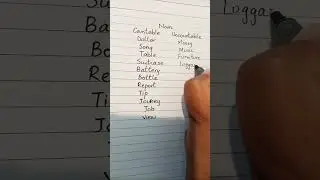 Noun
Countable Uncountable
Dollar Money
Song Music
Table Furniture
Suitcase lugga
Battery
Bottle
Report
Tip
Journey
Job
View